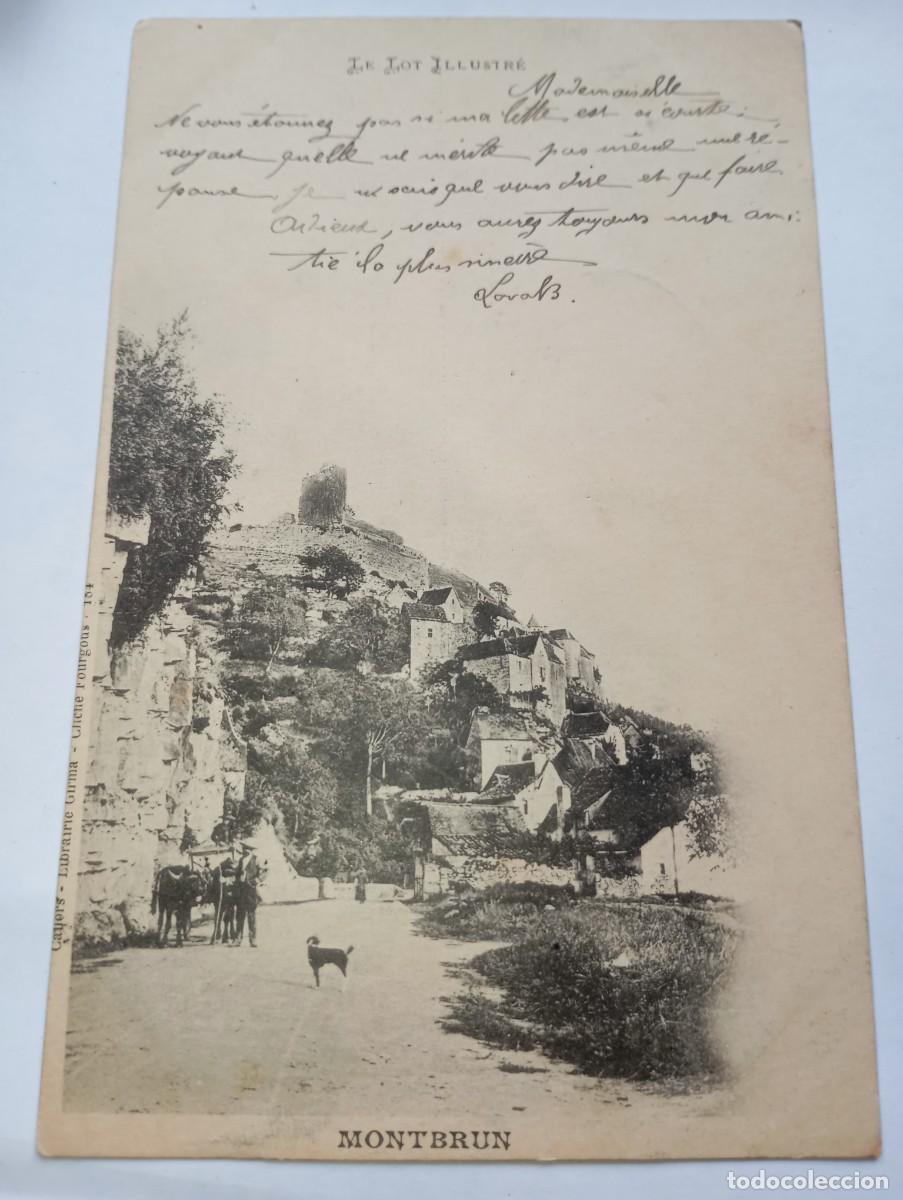 LE LOT ILLUSTRÉ
Mademoiselle
Ne vous étonnez pas si ma lettre est si courte;
voyant qu'elle ne mérite pas même une ré-
ponse, je ne sais que vous dire et que faire
Adieux, vous aurez toujours mon ami-
tié la plus sincère
Cahors - Librairie Girma - Cliché Fourgous. 184
MONTBRUN
todocoleccion